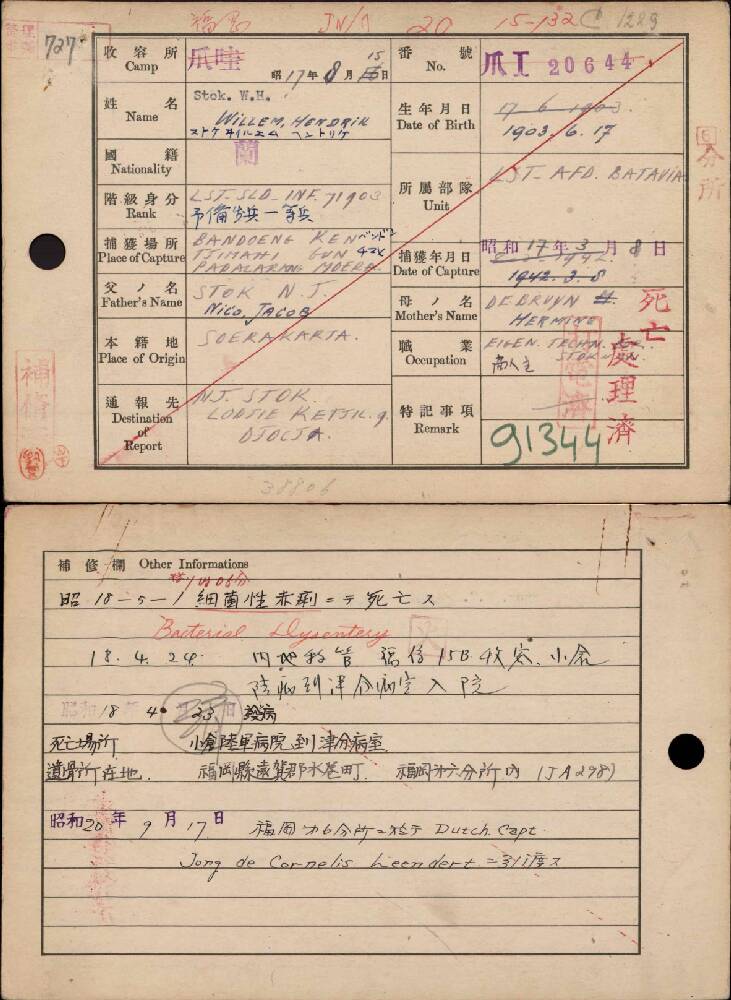 福岡 20 15-132 C 1289
727
收容所 Camp 爪哇 昭17年8月15日
番號 No. 爪I 20644
姓名 Name Stok. W.H.
WILLEM, HENDRIK
ストク ウイルエム ヘンドリク
生年月日 Date of Birth 17-6-1903
1903.6.17
國籍 Nationality 蘭
階級身分 Rank LST-SLD-INF. 71903
予備歩兵一等兵
所屬部隊 Unit LST-AFD. BATAVIA
捕獲場所 Place of Capture BANDOENG KEN
TJIMAHI GUN
PADALARANG MOERA.
捕獲年月日 Date of Capture 昭和17年3月8日
1942.3.8
父ノ名 Father's Name STOK N.J.
NICO, JACOB
母ノ名 Mother's Name DEBRUYN H.
HERMINE
本籍地 Place of Origin SOERAKARTA.
職業 Occupation EIGEN. TECHN.
通報先 Destination of Report N.J. STOK.
LODJIE KETJIL. 9.
DJOCJA.
特記事項 Remark
91344
死亡處理濟
分所
補修
38806
補修欄 Other Informations
昭 18-5-1 細菌性赤痢ニテ死亡ス
Bacterial Dysentery
18.4.24. 内地移管 福俘15B收容、小倉
陸病到津分病室入院
昭和18年4月23日 發病
死亡場所 小倉陸軍病院到津分病室
遺骨所在地. 福岡縣遠賀郡水巻町. 福岡オ六分所内 (JA298)
昭和20年9月17日 福岡オ6分所ニ於テ Dutch Capt.
Jong de Cornelis Leendert ニ引渡ス